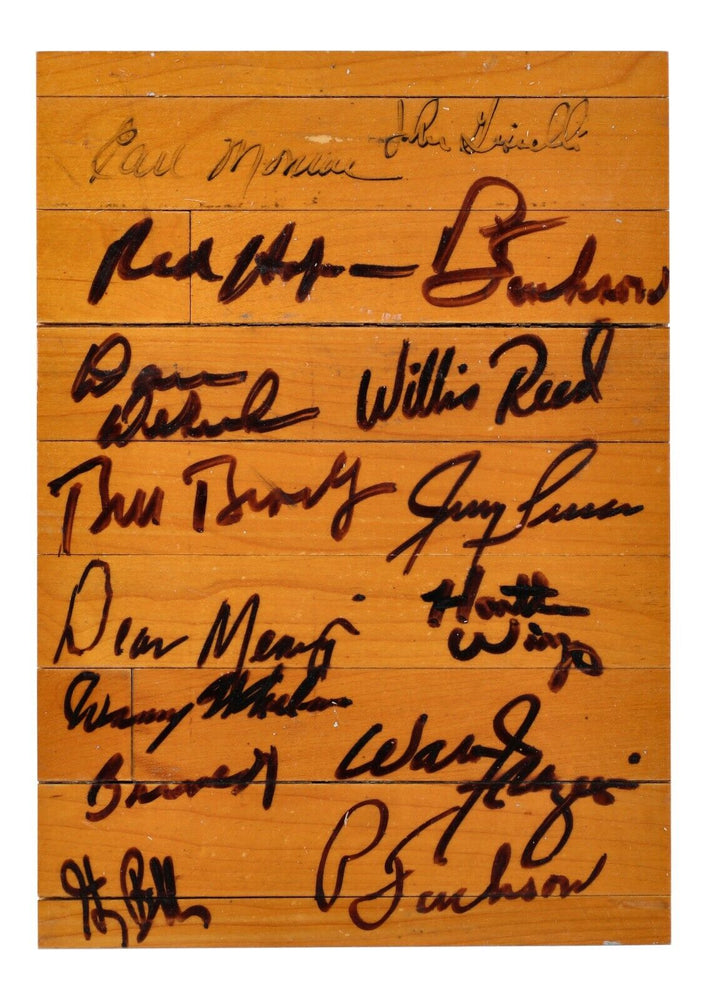 Earl Monroe John Gianelli
Red Holzman P Jackson
Dave Willis Reed
DeBusschere
Bill Bradley Jerry Lucas
Dean Meminger Harthorne
Wingo
Danny Whelan
Barnett Walt Frazier
Henry Bibby P Jackson